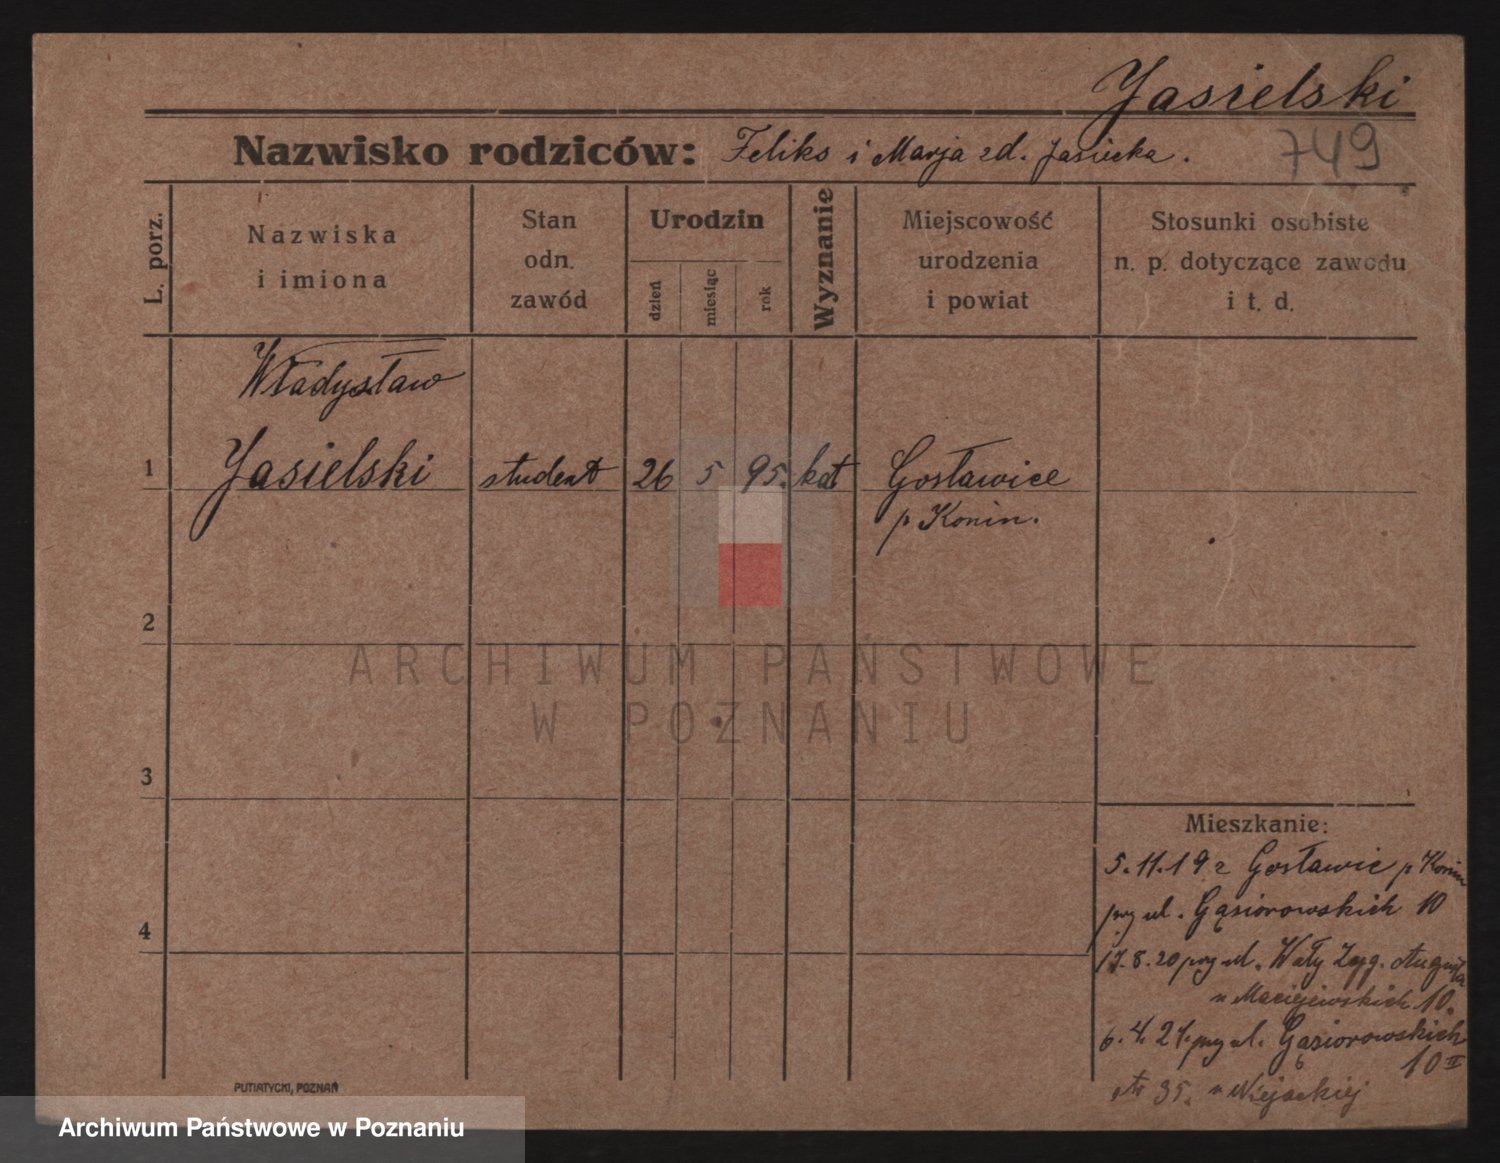 Jasielski
Nazwisko rodziców: Feliks i Marja zd. Jasiecka.
749
L. porz.
Nazwiska
i imiona
Stan
odn.
zawód
Urodzin
dzień
miesiąc
rok
Wyznanie
Miejscowość
urodzenia
i powiat
Stosunki osobiste
n. p. dotyczące zawodu
i t. d.
Władysław
1 Jasielski student 26 5 95. kat Gosławice
p Konin.
2
ARCHIWUM PAŃSTWOWE
W POZNANIU
3
Mieszkanie:
5.11.19 z Gosławic p Konin
przy ul. Gąsiorowskich 10
4
17.8.20 przy ul. Wały Zyg. Augusta
u Maciejewskich 10.
6.4.21. przy ul. Gąsiorowskich
10 II
35. u
PUTIATYCKI, POZNAŃ
Archiwum Państwowe w Poznaniu